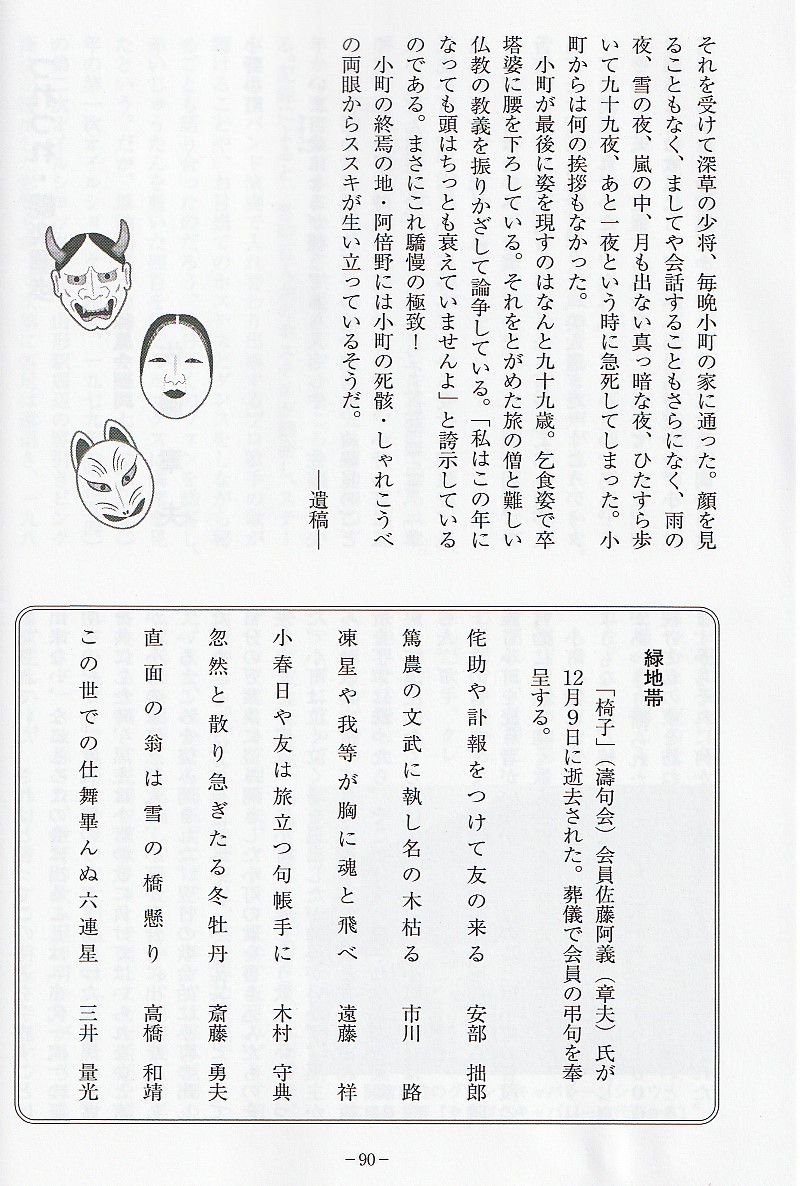 それを受けて深草の少将、毎晩小町の家に通った。顔を見
ることもなく、ましてや会話することもさらになく、雨の
夜、雪の夜、嵐の中、月も出ない真っ暗な夜、ひたすら歩
いて九十九夜、あと一夜という時に急死してしまった。小
町からは何の挨拶もなかった。
小町が最後に姿を現すのはなんと九十九歳。乞食姿で卒
塔婆に腰を下ろしている。それをとがめた旅の僧と難しい
仏教の教義を振りかざして論争している。「私はこの年に
なっても頭はちっとも衰えていませんよ」と誇示している
のである。まさにこれ驕慢の極致！
小町の終焉の地・阿倍野には小町の死骸・しゃれこうべ
の両眼からススキが生い立っているそうだ。
―遺稿―
緑地帯
「椅子」（濤句会）会員佐藤阿義（章夫）氏が
12月9日に逝去された。葬儀で会員の弔句を奉
呈する。
侘助や訃報をつけて友の来る 安部 拙郎
篤農の文武に執し名の木枯る 市川 路
凍星や我等が胸に魂と飛べ 遠藤 祥
小春日や友は旅立つ句帳手に 木村 守典
忽然と散り急ぎたる冬牡丹 斎藤 勇夫
直面の翁は雪の橋懸り 高橋 和靖
この世での仕舞畢んぬ六連星 三井 量光
−90−